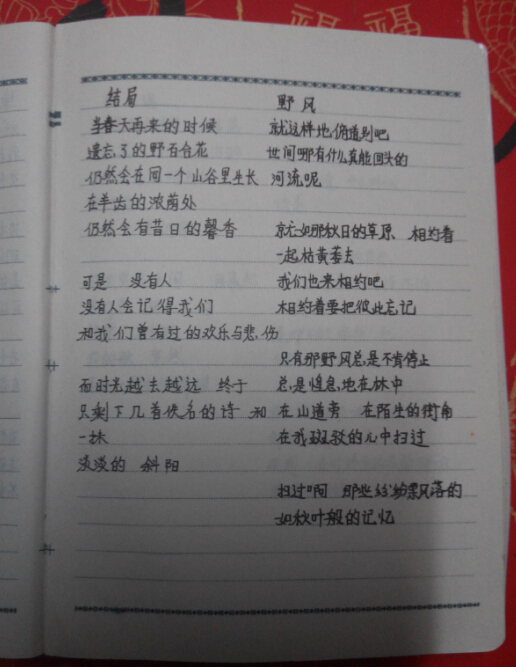 福 福
结局
当春天再来的时候
遗忘了的野百合花
仍然会在同一个山谷里生长
在羊齿的浓荫处
仍然会有昔日的馨香
可是 没有人
没有人会记得我们
和我们曾有过的欢乐与悲伤
而时光越去越远 终于
只剩下几首佚名的诗 和
一抹
淡淡的 斜阳
野风
就这样地俯首道别吧
世间哪有什么真能回头的
河流呢
就如那秋日的草原 相约着
一起枯黄萎去
我们也来相约吧
相约着要把彼此忘记
只有那野风总是不肯停止
总是惶急地在林中
在山道旁 在陌生的街角
在我斑驳的心中扫过
扫过啊 那些纷纷飘落的
如秋叶般的记忆